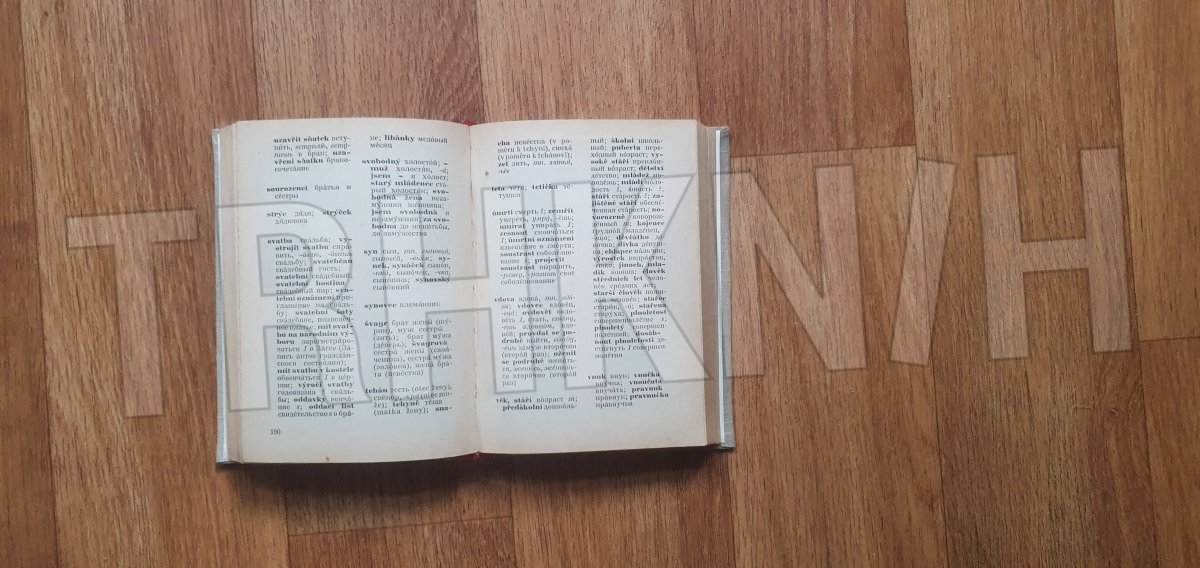 uzavřít sňatek всту-
в брак; uza-
vření sňatku брако-
сочетание
sourozenci братья и
сёстры
strýc дядя; strýček
дядюшка
svatba свадьба; vy-
strojit svatbu спра-
свадьбу; svatebčan
свадебный гость;
svatební свадебный;
svatební hostina
свадебный пир; sva-
tební oznámení при-
глашение на свадь-
бу; svatební šaty
свадебное, подвенеч-
ное платье; mít svat-
bu na národním vý-
boru зарегистриро-
ваться
mít svatbu v kostele
обвенчаться в цер-
výročí svatby
годовщина свадь-
бы; oddavky венча-
ние s; oddací list
свидетельство s о бра-
190
ке; líbánky медовый
месяц
svobodný холостой;
muž холостяк,
jsem я холост;
starý mládenec ста-
рый холостяк; svo-
bodná žena неза-
мужняя женщина;
jsem svobodná я
незамужняя; za svo-
bodna до женитьбы,
до замужества
syn сын,
sy-
nek, synáček сынок,
сыночек,
synovský
сыновний
synovec племянник
švagr брат жены (шу-
рин), муж сестры
(зять); брат мужа
(деверь); švagrová
сестра жены (своя-
ченица), сестра мужа
(золовка), жена бра-
та (невестка)
tchán тесть (otec ženy),
свёкор (otec mu-
že); tchyně тёща
(matka ženy); sna-
cha невестка (v po-
měru k tchyni), сноха
(v poměru k tchánovi);
zeť зять,
teta тётя; tetička тё-
тушка
úmrtí смерть ž; zemřít
умереть,
umírat умирать
zesnout скончаться
úmrtní oznámení
извещение о смерти;
soustrast соболезно-
вание s; projevit
soustrast выразить
своё
соболезнование
vdova вдова,
vdovec вдовец,
ovdovět овдо-
веть стать
вдовой, вдо-
вой; provdat se po-
druhé выйти
замуж вто-
рично (второй раз); oženit
se podruhé женить-
ся вторично (второй
раз)
věk, stáří возраст m;
předškolní дошколь-
ный; školní школь-
ный; puberta пере-
ходный возраст; vy-
soké stáří преклон-
ный возраст; dětství
детство; mládež мо-
лодёжь; mládí моло-
дость ž, юность ž;
stáří старость ž; za-
jištěné stáří обеспе-
ченная старость; no-
vorozeně новорож-
дённый; kojenec
грудной младенец,
děvčátko де-
вочка; dívka девуш-
ka; chlapec мальчик;
výrostek подросток,
jinoch, mla-
dík юноша; člověk
středních let чело-
век средних лет;
starší člověk пожи-
лой человек; stařec
старик, stařena
старуха; plnoletost
совершеннолетие s;
plnoletý совершен-
нолетний; dosáh-
nout plnoletosti до-
стигнуть совершен-
нолетия
vnuk внук; vnučka
внучка; vnoučata
внучата; pravnuk
правнук; pravnučka
правнучка